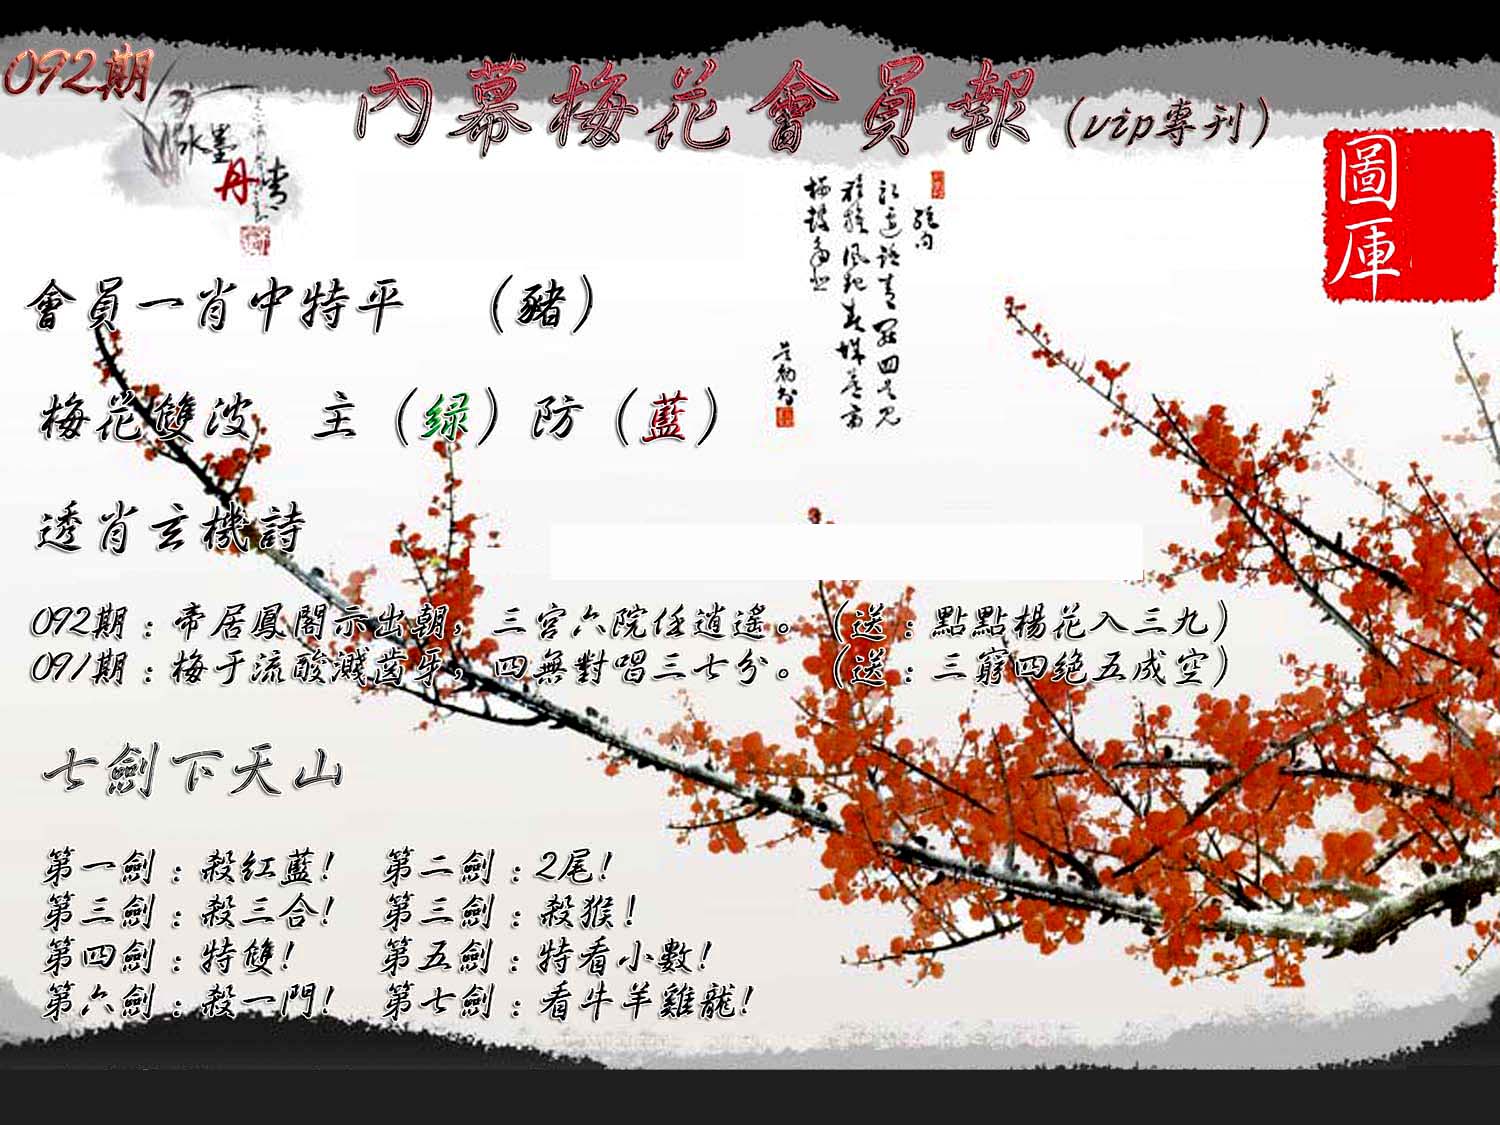 092期
內幕梅花會員報(vip專刊)
水墨
丹青
圖庫
會員一肖中特平 (豬)
梅花雙波 主(绿)防(藍)
透肖玄機詩
092期:帝居鳳閣示出朝,三宮六院任逍遙。(送:點點楊花入三九)
091期:梅于流酸濺齒牙,四無對唱三七分。(送:三窮四绝五成空)
七劍下天山
第一劍:殺紅藍! 第二劍:2尾!
第三劍:殺三合! 第三劍:殺猴!
第四劍:特雙! 第五劍:特看小數!
第六劍:殺一門! 第七劍:看牛羊雞龍!